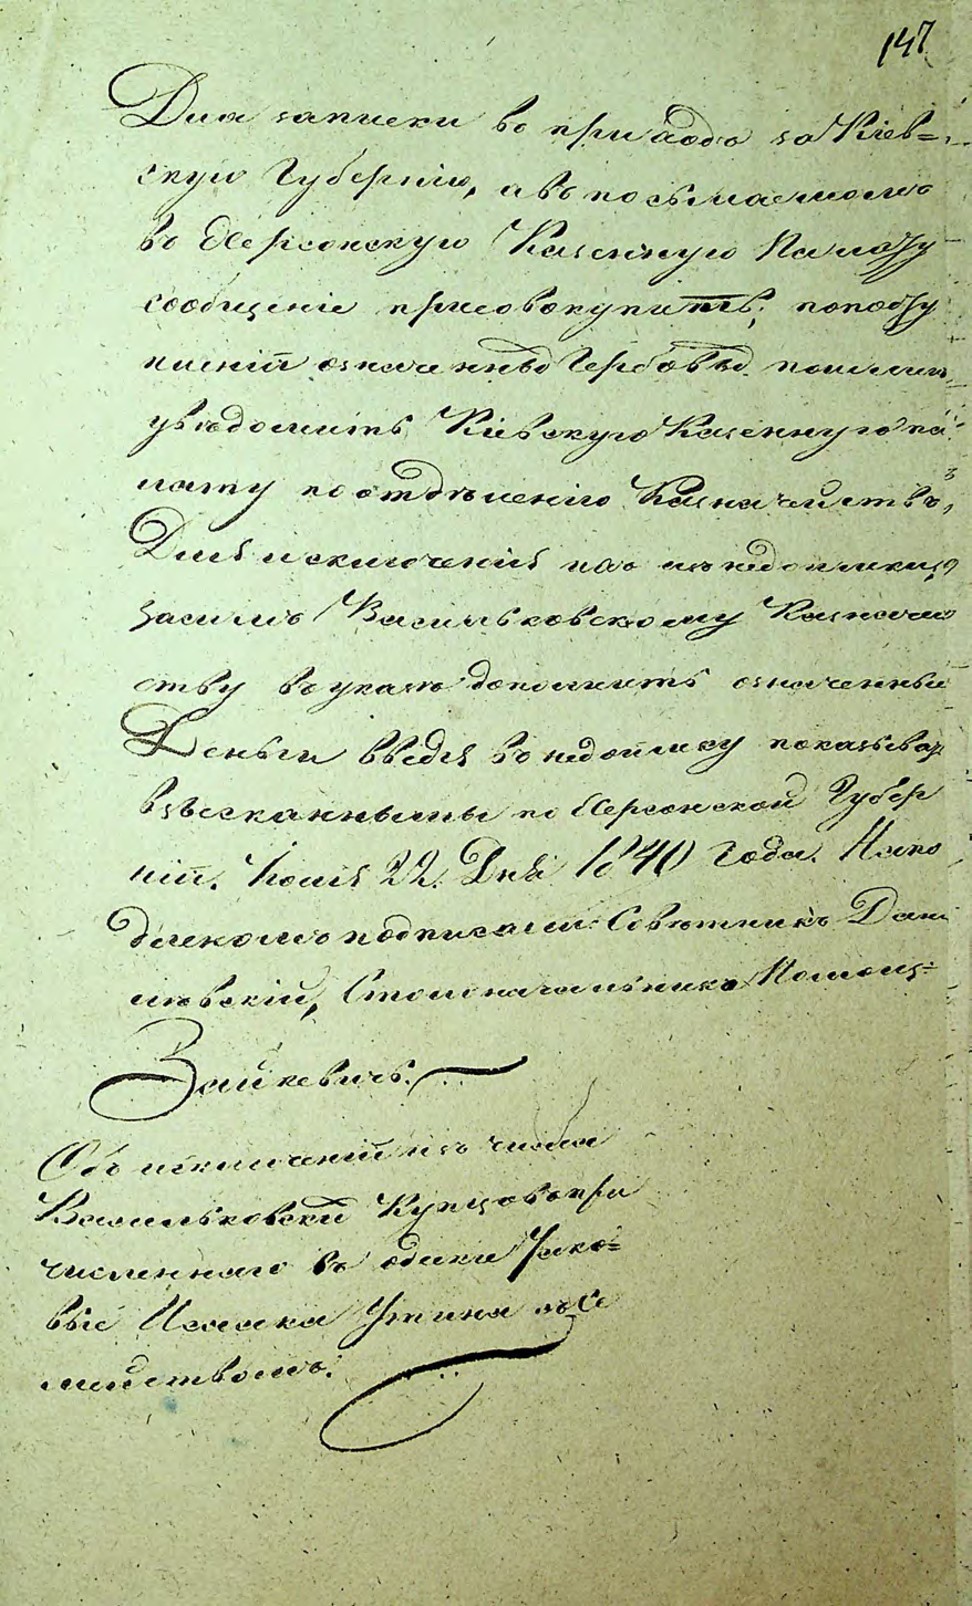 147
Для записки въ приходъ за Кіев=
скую Губернію, а въ посылаемомъ
въ Херсонскую Казенную Палату
сообщеніе присовокупить; по полу
ченіи означенныхъ Гербовыхъ пошлин
увѣдомить Кіевскую Казенную па
лату по отдѣленію Казначействъ,
Для исключенія ихъ изъ недоимки, о
засимъ Васильковскому Казначей
ству въ указѣ дополнить означенный
Деньги введя въ недоимку показывать
взысканными по Херсонской Губер
ніи. Іюля 22. Дня 1840 года. На по
длинномъ подписали: Совѣтникъ Дани
левскій, Столоначальника Помощ=
Зайкевичъ.
Объ исключеніи изъ числа
Васильковскихъ Купцовъ при
численнаго въ одесскія Купе=
Исаака Утина съ се
мействомъ.